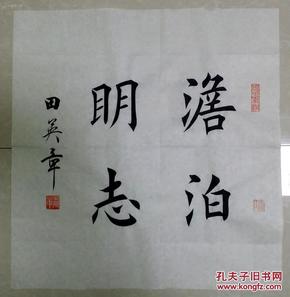 澹泊
明志
田英章
孔夫子旧书网
www.kongfz.com